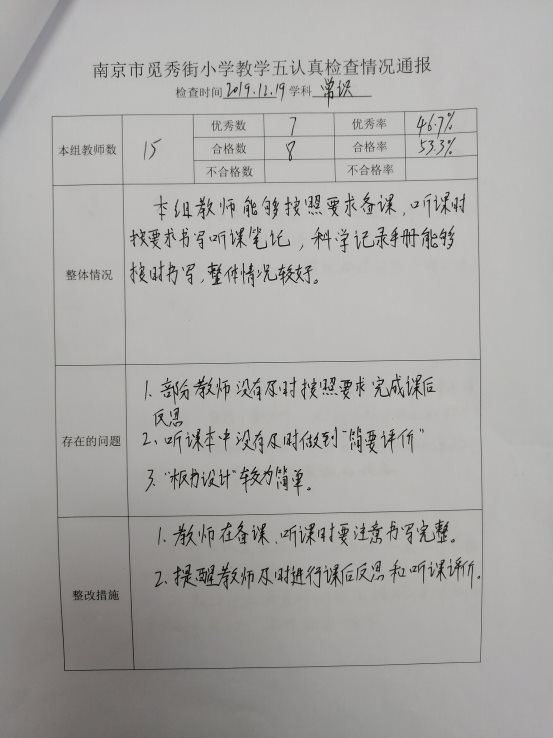 南京市觅秀街小学教学五认真检查情况通报
检查时间 2019.12.19 学科 常识
本组教师数 15 优秀数 7 优秀率 46.7%
合格数 8 合格率 53.3%
不合格数 不合格率
整体情况
本组教师能够按照要求备课，听课时
按要求书写听课笔记，科学记录手册能够
按时书写，整体情况较好。
存在的问题
1. 部份教师没有及时按照要求完成课后
反思
2、听课本中没有及时做到“简要评价”
3. “板书设计”较为简单。
整改措施
1. 教师在备课、听课时要注意书写完整。
2. 提醒教师及时进行课后反思和听课评价。